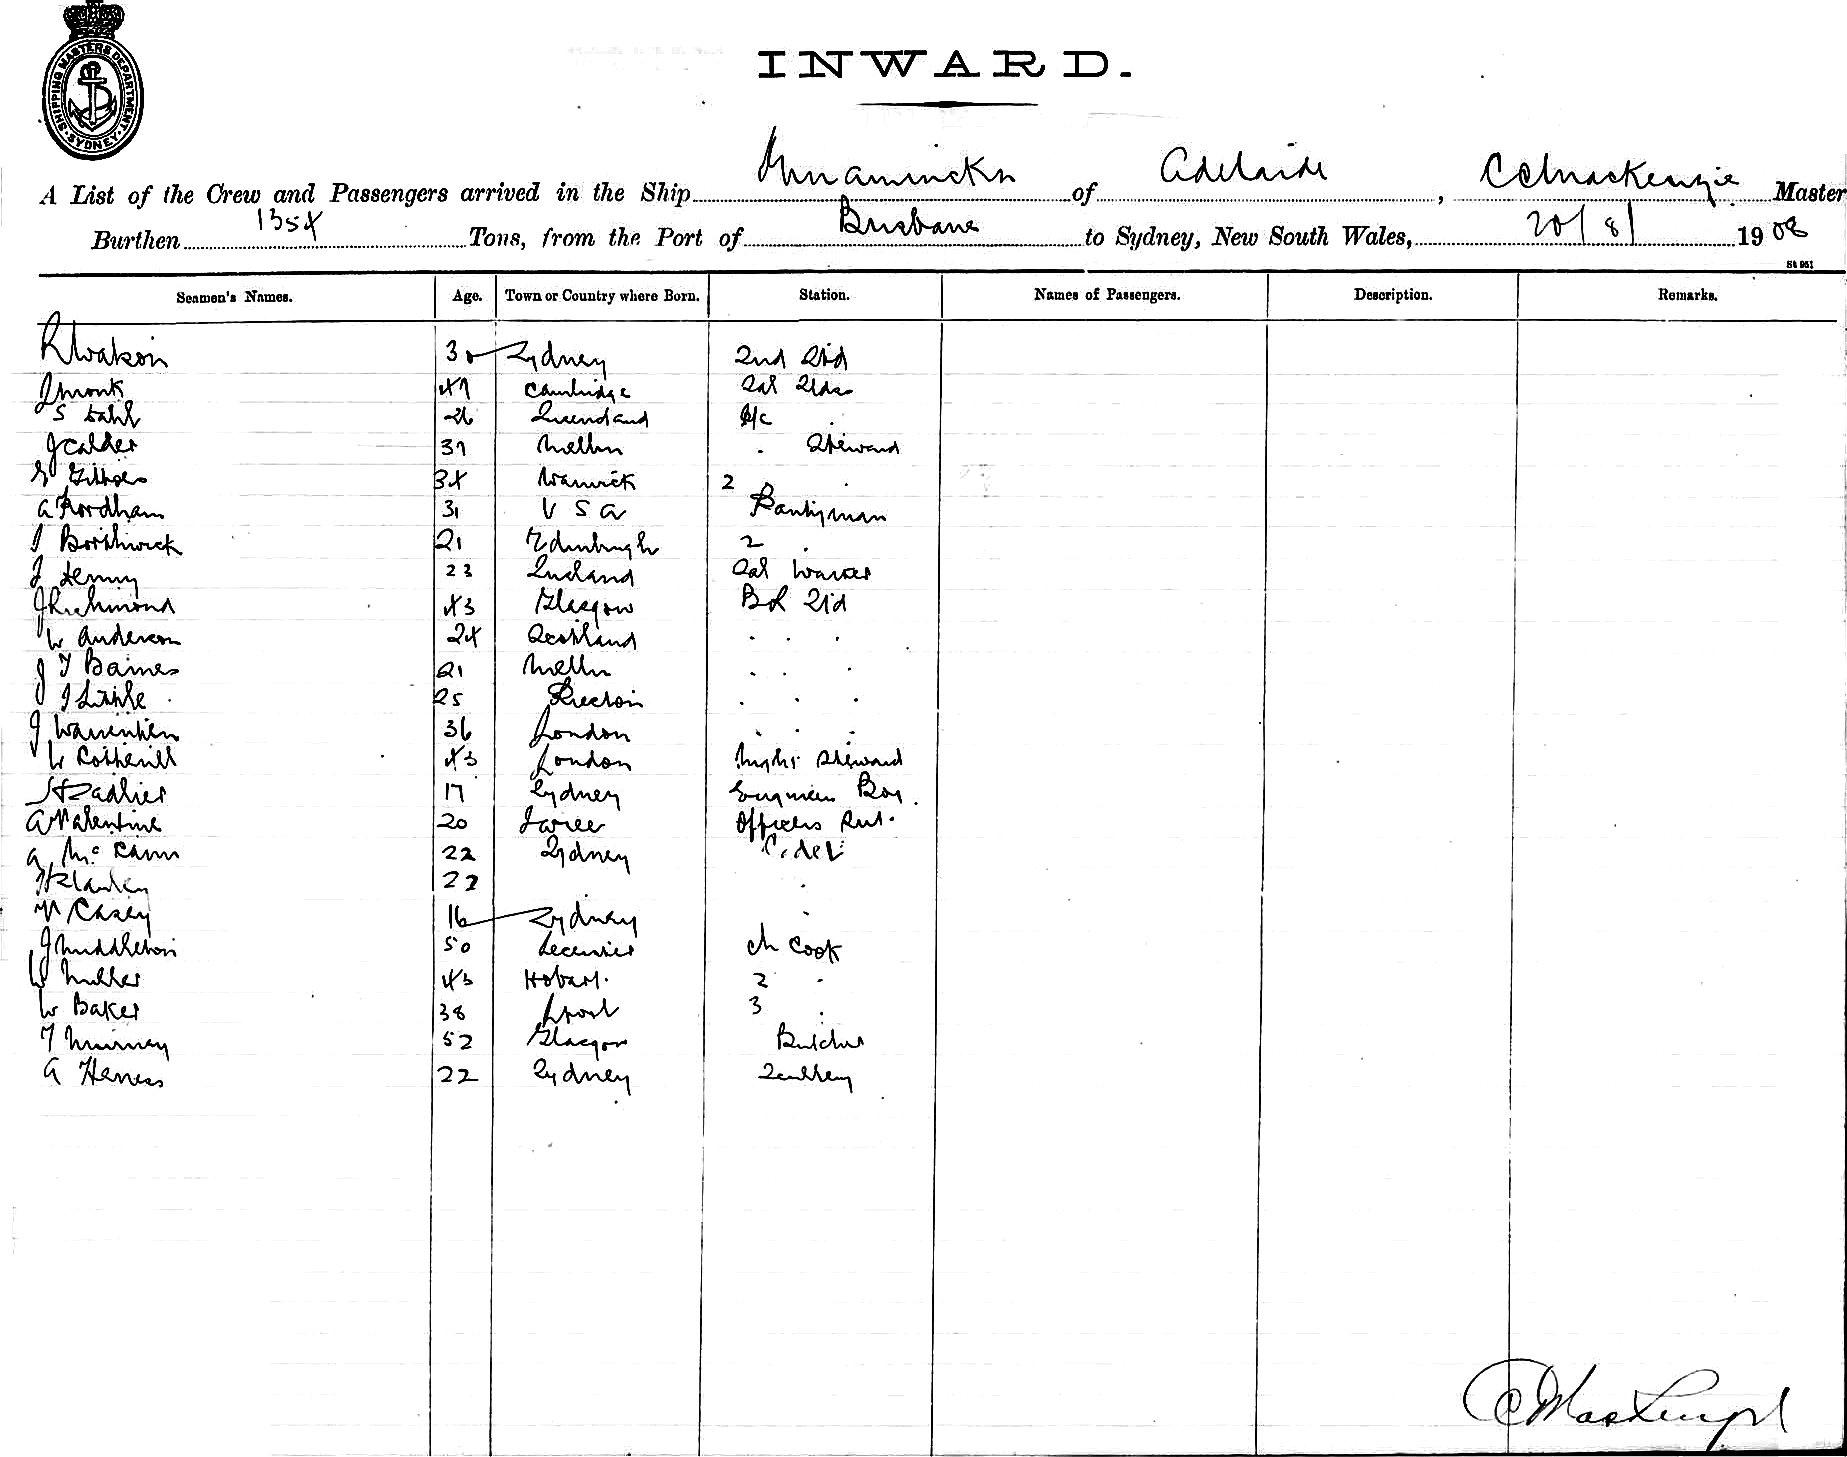 SHIPPING MASTERS DEPARTMENT · SYDNEY
INWARD.
A List of the Crew and Passengers arrived in the Ship of Adelaide, Mackenzie Master
Burthen 1354 Tons, from the Port of Brisbane to Sydney, New South Wales, 20/8/ 1908
St 951
Seamen's Names. Age. Town or Country where Born. Station. Names of Passengers. Description. Remarks.
R Watson 30 Sydney 2nd Std
J Monk 47 Cambridge Sal
S Dahl 26
J Calder 37 Melbn . Steward
34 Warwick 2 .
A Fordham 31 U S A Pantryman
J Borthwick 21 Edinburgh 2 .
J Henny 23 Sal Waiter
J Richmond 43 Glasgow Std
W Anderson 24 Scotland . . .
J T Barnes 21 Melbn . . .
J Little 25 . . .
J 36 London . . .
W 43 London Night Steward
H Sadlier 17 Sydney Engineers Boy.
A Valentine 20 Taree Officers
A McCann 22 Sydney
22 .
Casey 16 Sydney .
J Middleton 50 Leicester Ch Cook
W Miller 43 Hobart. 2 .
W Baker 38 Lpool 3 .
T Murray 52 Glasgow Butcher
A 22 Sydney Scullery